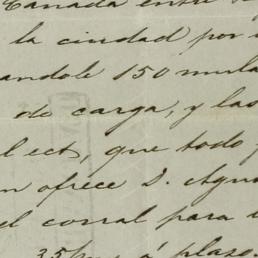 Cañada entre
la ciudad por
andole 150 mula
de carga, y las
l ect, que todo
n ofrece D. Agu
el corral para
35 á plazo